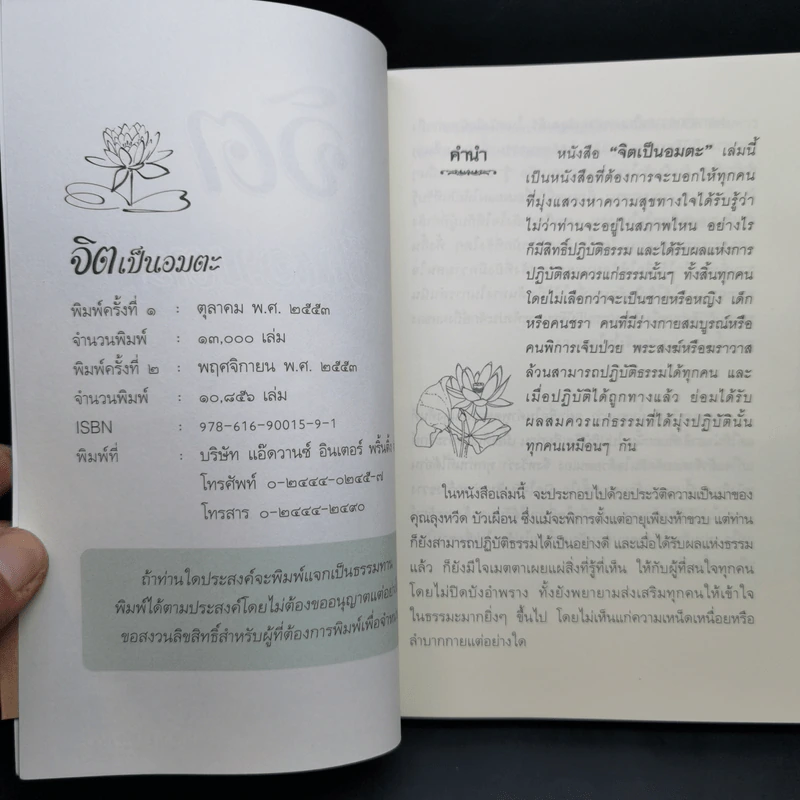 จิตเป็นอมตะ
พิมพ์ครั้งที่ ๑ : ตุลาคม พ.ศ. ๒๕๕๓
จำนวนพิมพ์ : ๑๓,๐๐๐ เล่ม
พิมพ์ครั้งที่ ๒ : พฤศจิกายน พ.ศ. ๒๕๕๓
จำนวนพิมพ์ : ๑๐,๘๕๖ เล่ม
ISBN : 978-616-90015-9-1
พิมพ์ที่ : บริษัท แอ๊ดวานซ์ อินเตอร์ พริ้นติ้ง
โทรศัพท์ ๐-๒๔๔๔-๐๒๔๕-๗
โทรสาร ๐-๒๔๔๔-๒๔๙๐
ถ้าท่านใดประสงค์จะพิมพ์แจกเป็นธรรมทาน
พิมพ์ได้ตามประสงค์โดยไม่ต้องขออนุญาตแต่อย่าง
ขอสงวนลิขสิทธิ์สำหรับผู้ที่ต้องการพิมพ์เพื่อ
คำนำ
หนังสือ “จิตเป็นอมตะ” เล่มนี้
เป็นหนังสือที่ต้องการจะบอกให้ทุกคน
ที่มุ่งแสวงหาความสุขทางใจได้รับรู้ว่า
ไม่ว่าท่านจะอยู่ในสภาพไหน อย่างไร
ก็มีสิทธิ์ปฏิบัติธรรม และได้รับผลแห่งการ
ปฏิบัติสมควรแก่ธรรมนั้นๆ ทั้งสิ้นทุกคน
โดยไม่เลือกว่าจะเป็นชายหรือหญิง เด็ก
หรือคนชรา คนที่มีร่างกายสมบูรณ์หรือ
คนพิการเจ็บป่วย พระสงฆ์หรือฆราวาส
ล้วนสามารถปฏิบัติธรรมได้ทุกคน และ
เมื่อปฏิบัติได้ถูกทางแล้ว ย่อมได้รับ
ผลสมควรแก่ธรรมที่ได้มุ่งปฏิบัตินั้น
ทุกคนเหมือนๆ กัน
ในหนังสือเล่มนี้ จะประกอบไปด้วยประวัติความเป็นมาของ
คุณลุงหวีด บัวเผื่อน ซึ่งแม้จะพิการตั้งแต่อายุเพียงห้าขวบ แต่ท่าน
ก็ยังสามารถปฏิบัติธรรมได้เป็นอย่างดี และเมื่อได้รับผลแห่งธรรม
แล้ว ก็ยังมีใจเมตตาเผยแผ่สิ่งที่รู้ที่เห็น ให้กับผู้ที่สนใจทุกคน
โดยไม่ปิดบังอำพราง ทั้งยังพยายามส่งเสริมทุกคนให้เข้าใจ
ในธรรมะมากยิ่งๆ ขึ้นไป โดยไม่เห็นแก่ความเหน็ดเหนื่อยหรือ
ลำบากกายแต่อย่างใด